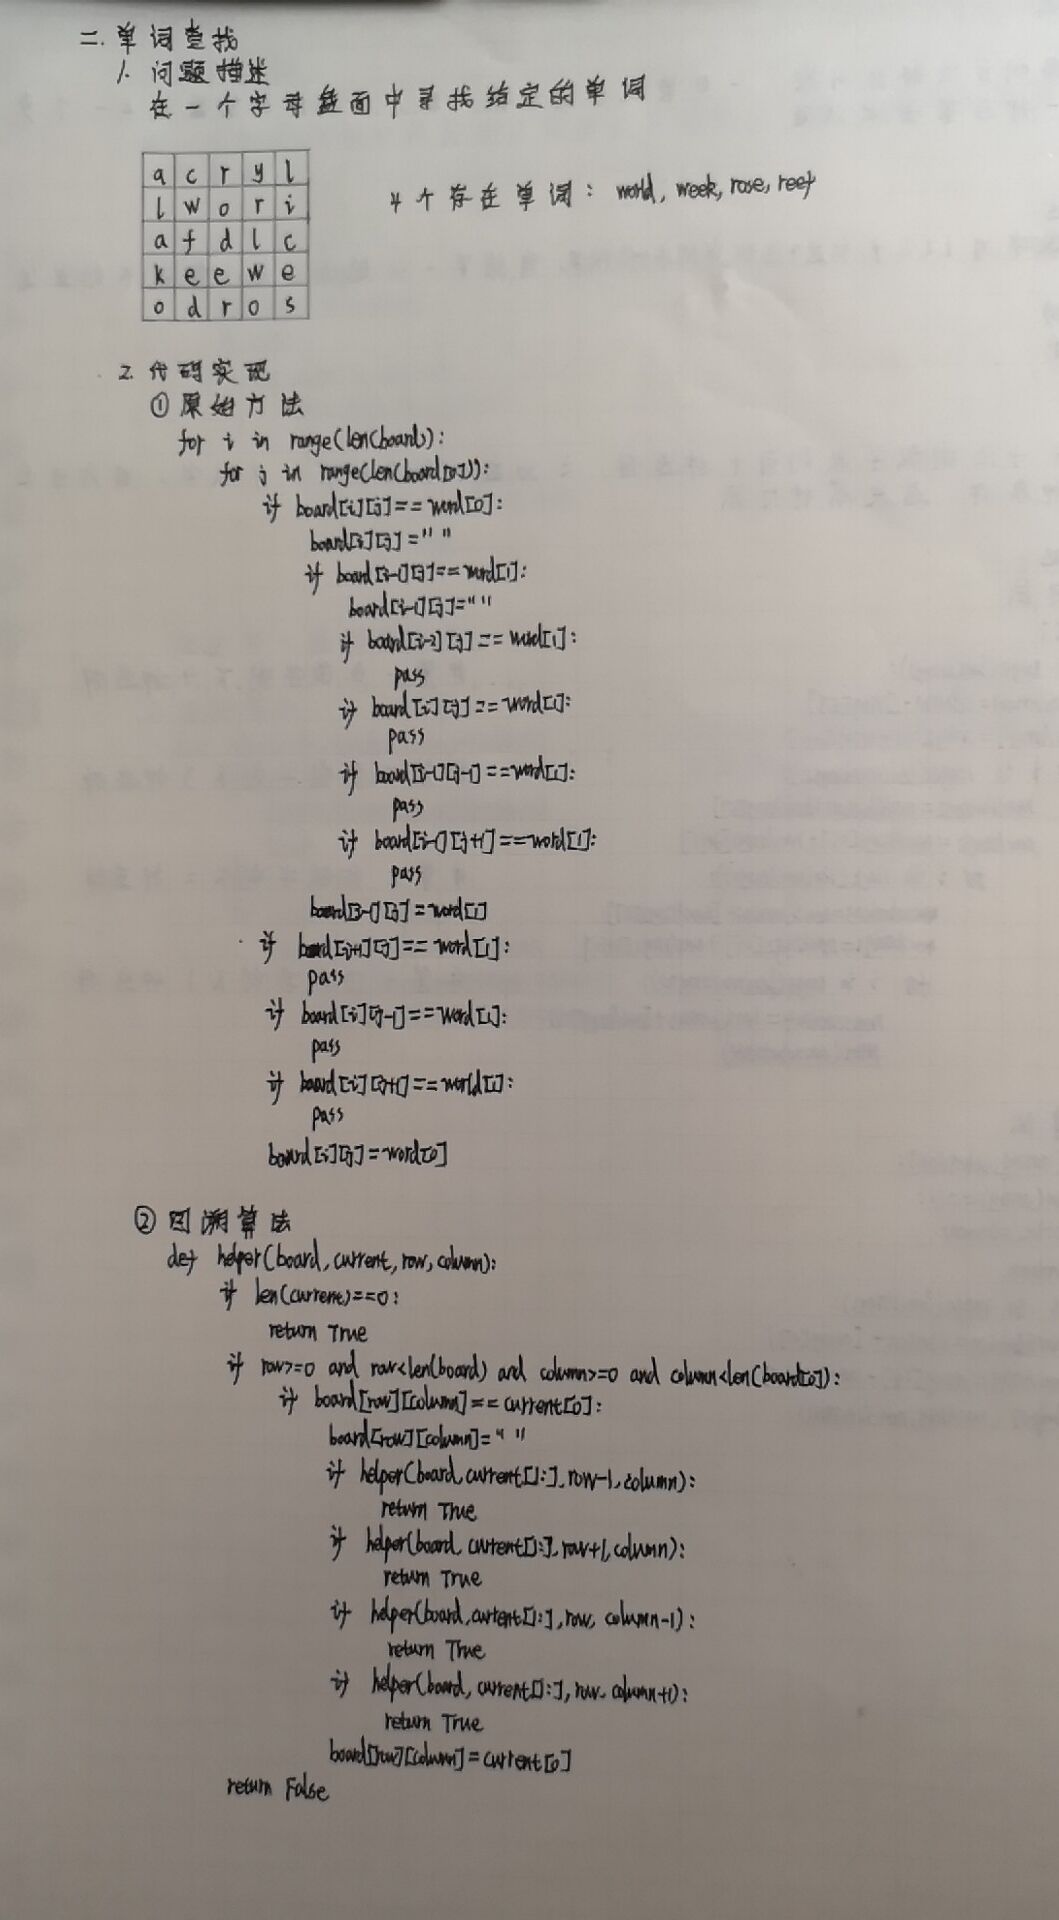 二. 单词查找
1. 问题描述
在一个字母盘面中寻找给定的单词
a c r y l
l w o r i
a f d l c
k e e w e
o d r o s
4个存在单词: world, week, rose, reef
2. 代码实现
① 原始方法
for i in range(len(board)):
for j in range(len(board[0])):
if board[i][j]==word[0]:
board[i][j]=" "
if board[i-1][j]==word[1]:
board[i-1][j]=" "
if board[i-2][j]==word[1]:
pass
if board[i][j]==word[1]:
pass
if board[i-1][j-1]==word[1]:
pass
if board[i-1][j+1]==word[1]:
pass
board[i-1][j]=word[1]
if board[i+1][j]==word[1]:
pass
if board[i][j-1]==word[1]:
pass
if board[i][j+1]==world[1]:
pass
board[i][j]=word[0]
② 回溯算法
def helper(board,current,row,column):
if len(current)==0:
return True
if row>=0 and row<len(board) and column>=0 and column<len(board[0]):
if board[row][column]==current[0]:
board[row][column]=" "
if helper(board,current[1:],row-1,column):
return True
if helper(board,current[1:],row+1,column):
return True
if helper(board,current[1:],row,column-1):
return True
if helper(board,current[1:],row,column+1):
return True
board[row][column]=current[0]
return False